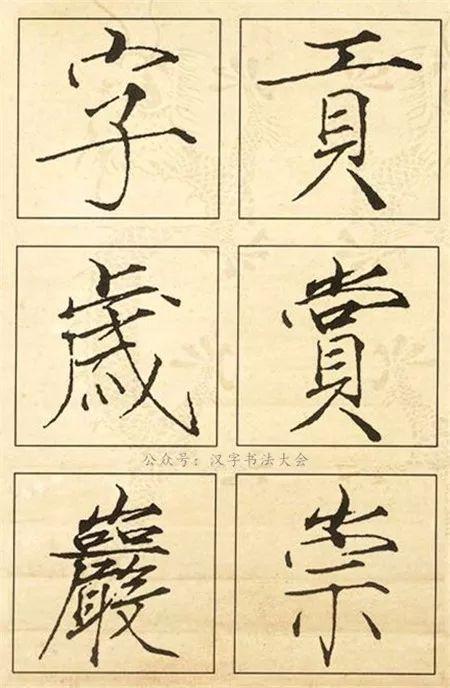 字 貢
歲 賞
公众号：汉字书法大会
巖 崇